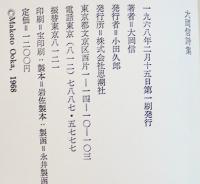 大岡信詩集
一九六八年二月十五日第一刷発行
著者＝大岡信
発行者＝小田久郎
発行所＝株式会社思潮社
東京都文京区西片一―一四―一〇―一〇三
電話東京(八一二)七八八七・五七七七
振替東京八一二一
印刷＝宝印刷・製本＝岩佐製本・製函＝永井製函
定価＝一一〇〇円
©Makoto Ōoka, 1968